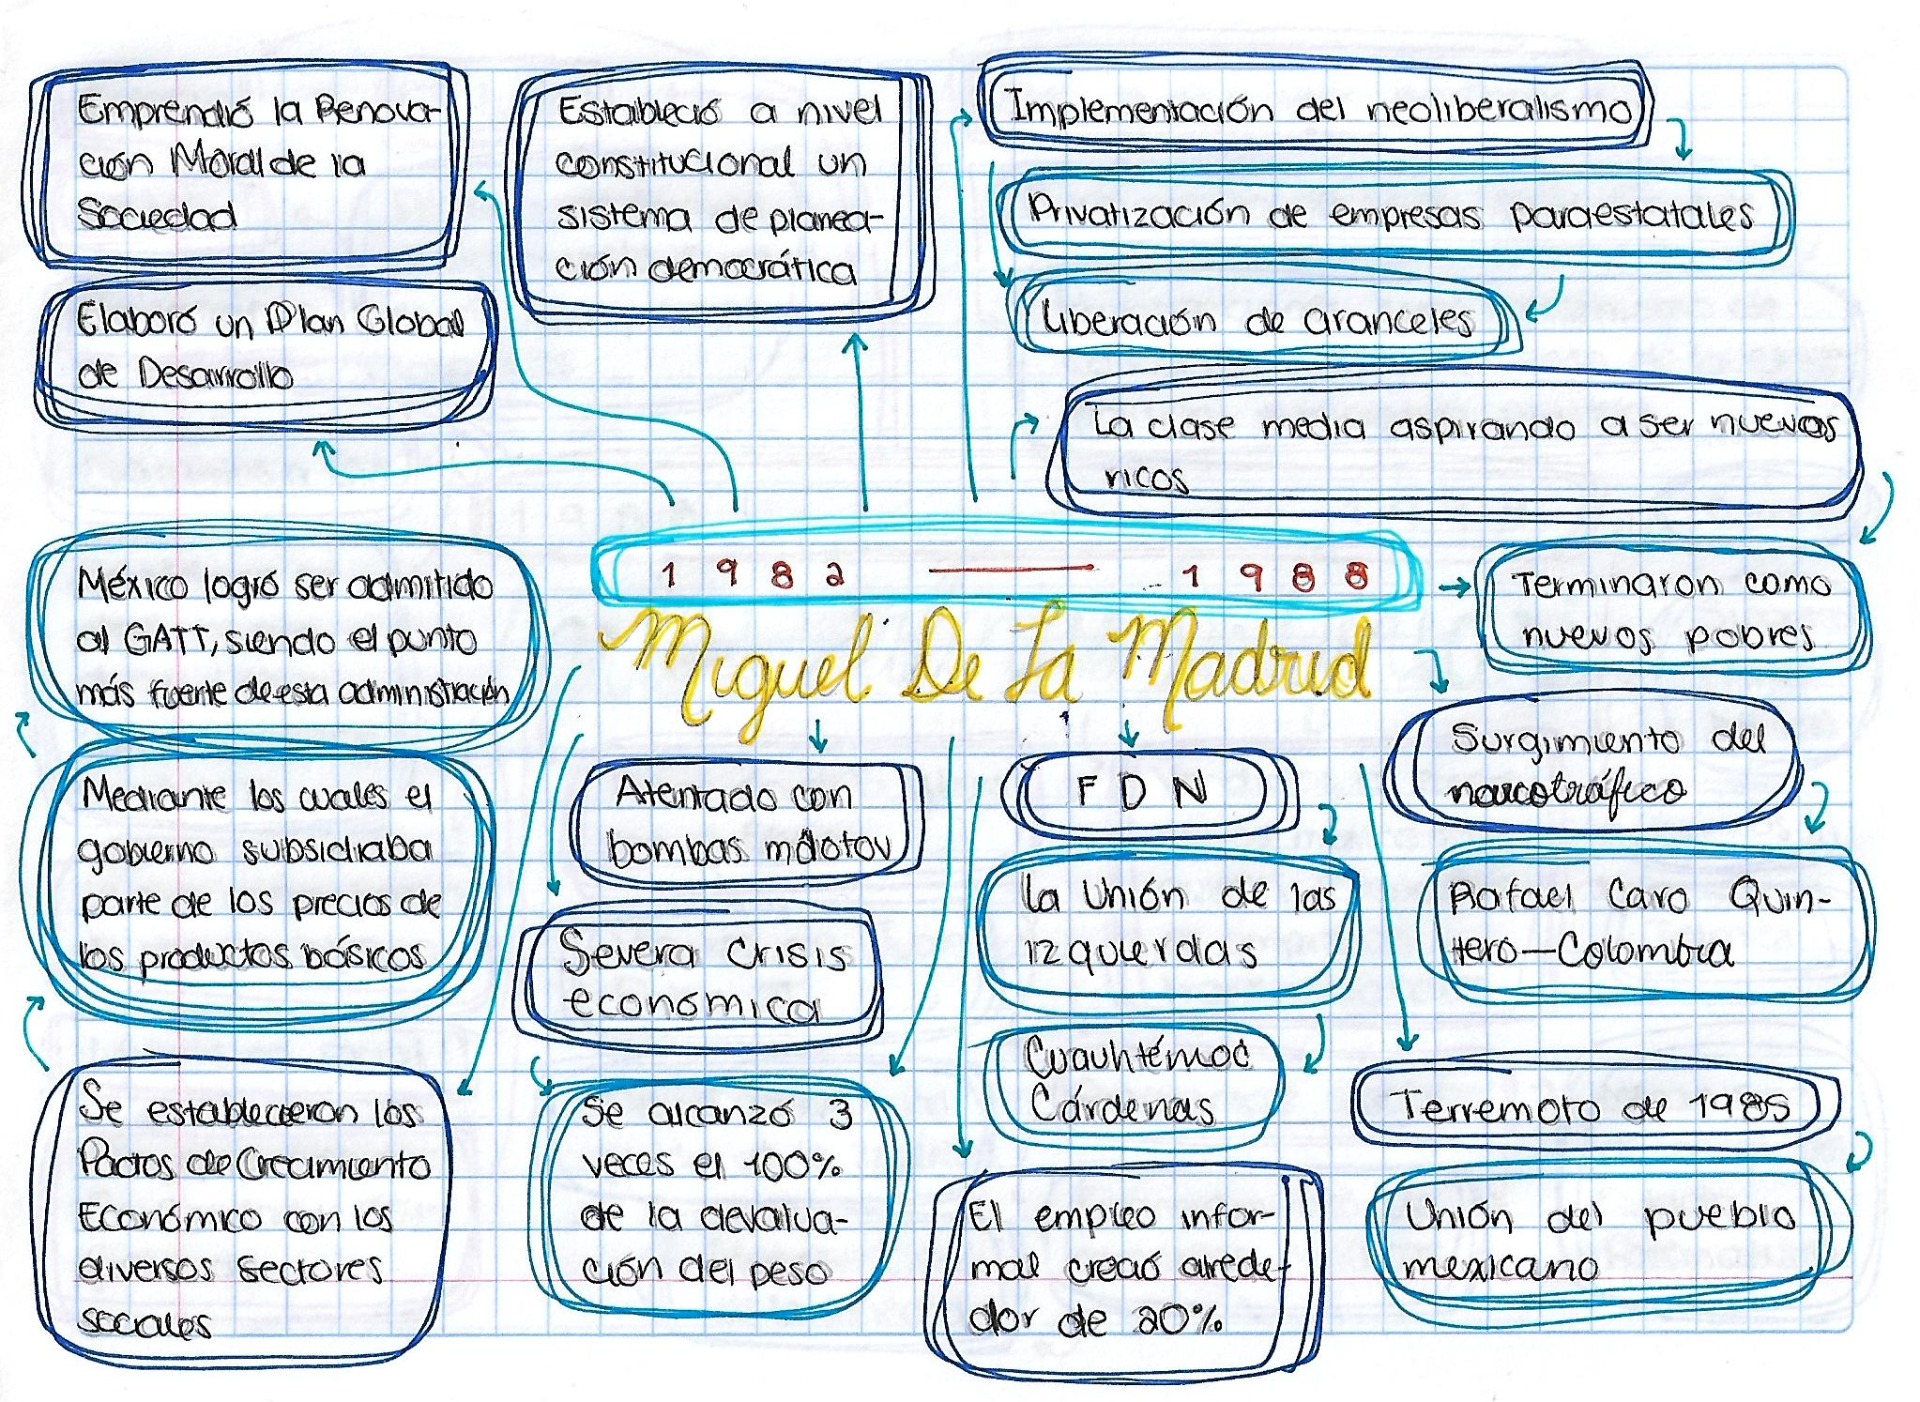 Emprendió la Renova-
ción Moral de la
Sociedad
Elaboró un Plan Global
de Desarrollo
Estableció a nivel
constitucional un
sistema de planea-
ción democrática
Implementación del neoliberalismo
Privatización de empresas paraestatales
Liberación de aranceles
La clase media aspirando a ser nuevos
ricos
Terminaron como
nuevos pobres
1982 — 1988
Miguel De La Madrid
México logró ser admitido
al GATT, siendo el punto
más fuerte de esta administración
Mediante los cuales el
gobierno subsidiaba
parte de los precios de
los productos básicos
Se establecieron los
Pactos de Crecimiento
Económico con los
diversos sectores
sociales
Atentado con
bombas mólotov
Severa crisis
económica
Se alcanzó 3
veces el 100%
de la devalua-
ción del peso
FDN
La Unión de las
izquierdas
Cuauhtémoc
Cárdenas
El empleo infor-
mal creció alrede-
dor de 20%
Surgimiento del
narcotráfico
Rafael Caro Quin-
tero—Colombia
Terremoto de 1985
Unión del pueblo
mexicano